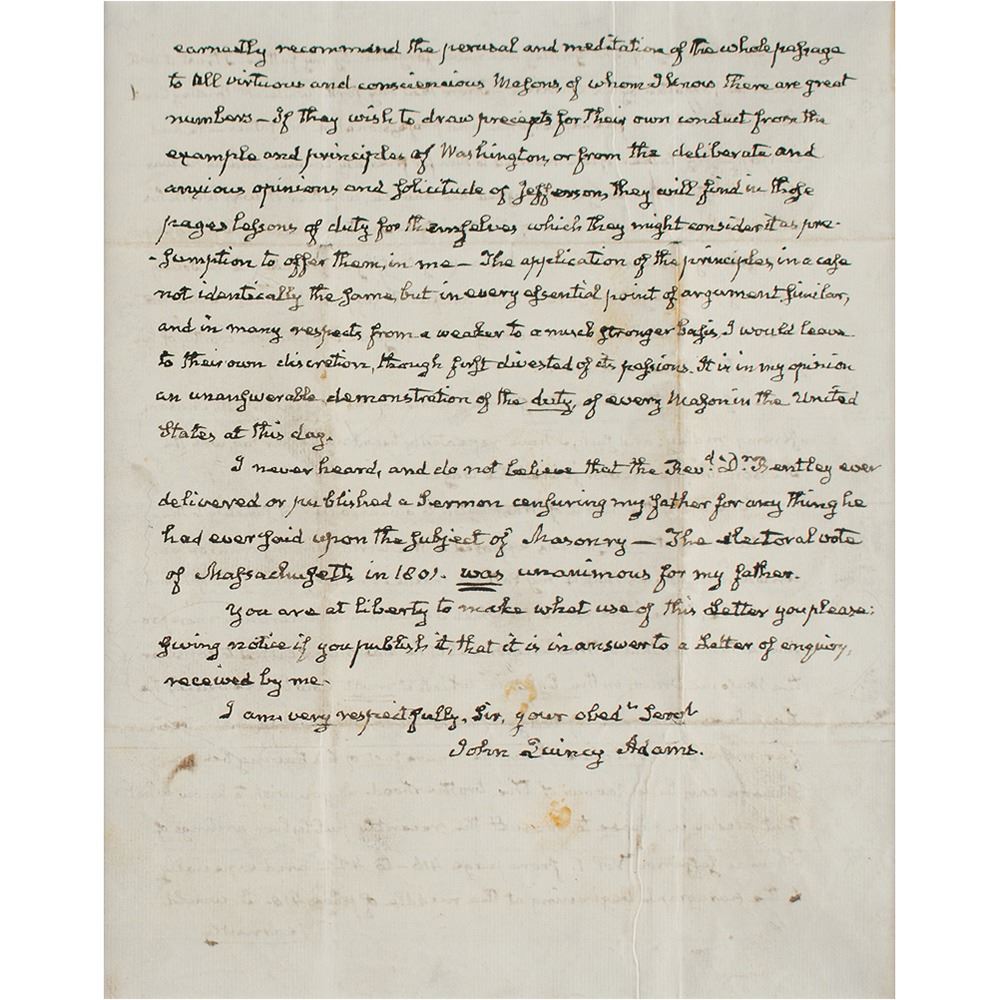 earnestly recommend the perusal and meditation of the whole passage
to all virtuous and conscientious Masons, of whom I know there are great
numbers — If they wish to draw precepts for their own conduct from the
example and principles of Washington, or from the deliberate and
anxious opinions and solicitude of Jefferson, they will find in those
pages lessons of duty for themselves which they might consider it as pre-
-sumption to offer them, in me — The application of the principles, in a case
not identically the same, but in every essential point of argument, similar,
and in many respects from a weaker to a much stronger basis, I would leave
to their own discretion, though first divested of its passions. It is in my opinion
an unanswerable demonstration of the duty, of every Mason in the United
States at this day.
I never heard, and do not believe that the Revd. Dr. Bentley ever
delivered or published a Sermon censuring my father for any thing he
had ever said upon the subject of Masonry — The electoral vote
of Massachusetts in 1801. was unanimous for my father.
You are at liberty to make what use of this Letter you please:
giving notice if you publish it, that it is in answer to a Letter of enquiry,
received by me.
I am, very respectfully, Sir, your obedt. Servt
John Quincy Adams.